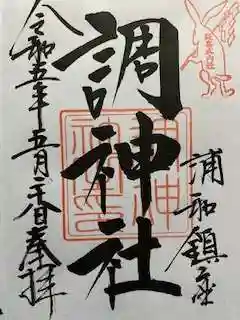 浦和鎮座
調神社
令和五年五月二十日奉拝